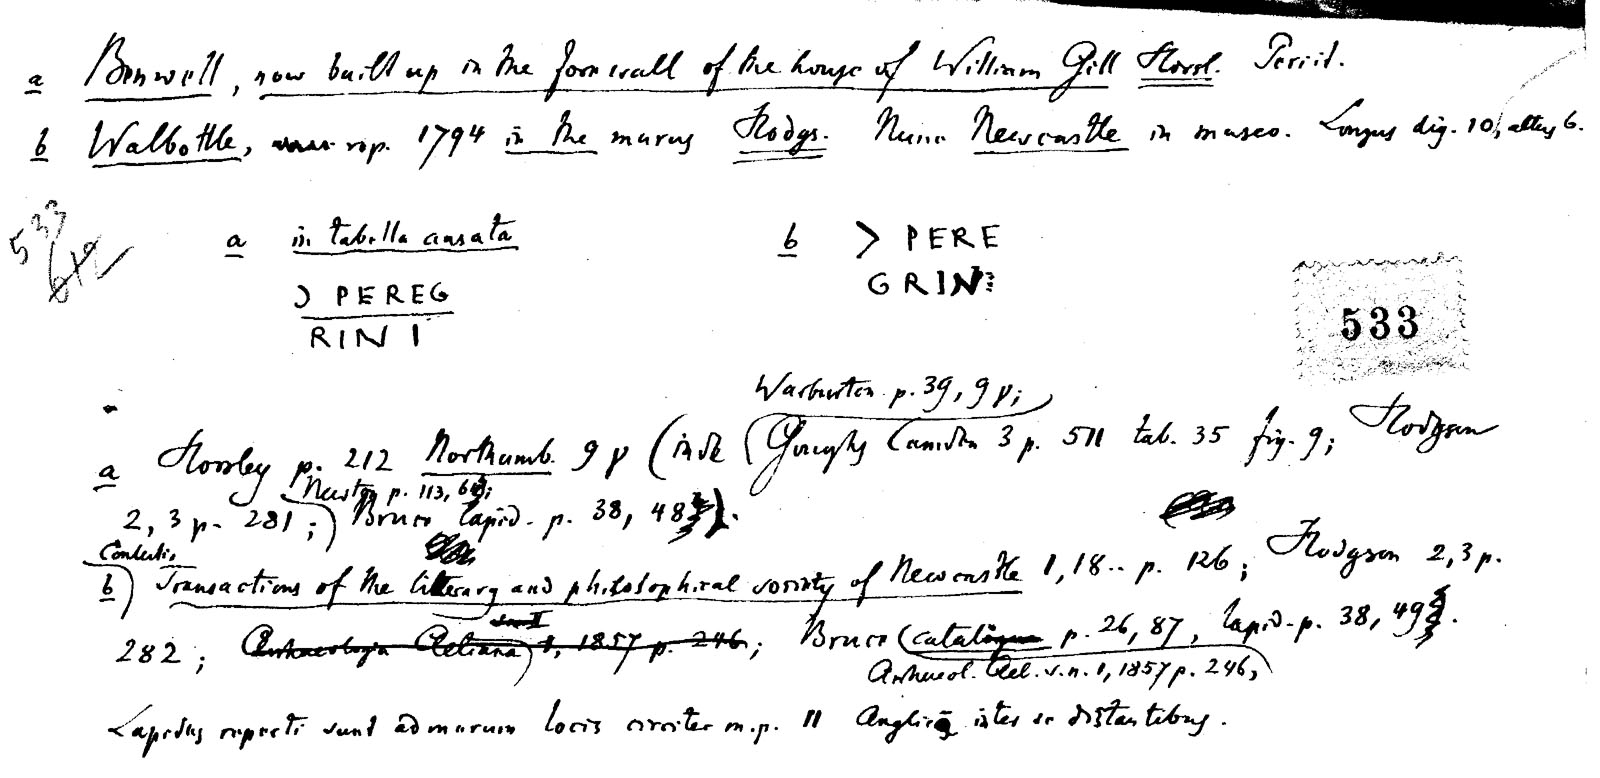 a Benwell, now built up in the fore wall of the house of William Gill Horsl. Periit.
b Walbottle, rep. 1794 in the murus Hodgs. Nunc Newcastle in museo. Longus dig. 10, altus 6.
533
a in tabella ansata
b > PERE
GRINI
Ɔ PEREG
RINI
533
Warburton p. 39, 9 γ;
a Horsley p. 212 Northumb. 9 γ (inde Goughs Camden 3 p. 511 tab. 35 fig. 9; Hodgson
p. 113,
2, 3 p. 281; Bruce lapid. p. 38, 48).
b Transactions of the literary and philosophical society of Newcastle 1, 18.. p. 126; Hodgson 2,3 p.
282; Archaeologia Aeliana 1, 1857 p. 246; Bruce catalogue p. 26, 87, lapid. p. 38, 49.
Archaeol. Ael. s.n. 1, 1857 p. 246,
Lapides reperti sunt ad murum locis circiter m.p. II Anglica inter se distantibus.